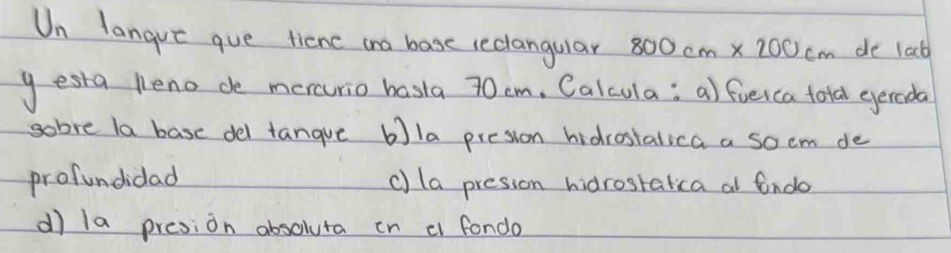 Un tanque que tiene una base rectangular 800 cm x 200 cm de lado
y esta lleno de mercurio hasta 70 cm. Calcula: a) fuerca total ejercida
sobre la base del tanque b) la presion hidrostatica a 50 cm de
profundidad c) la presion hidrostatica al fondo
d) la presión absoluta en el fondo